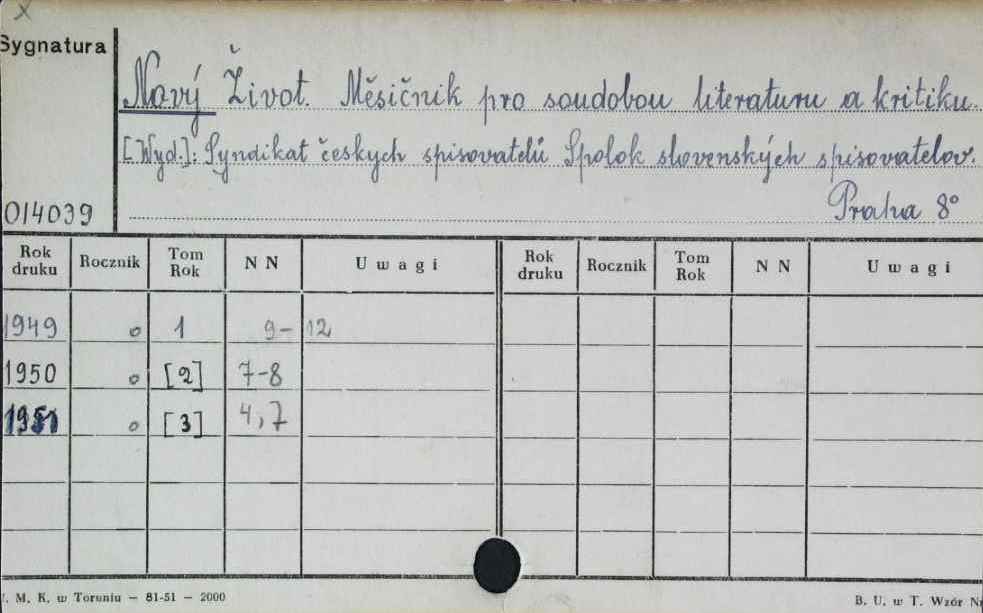 x
Sygnatura
Nový Život. Měsičnik pro soudobou literaturu a kritiku.
[Wyd.]: Syndikat českych spisovatelů Spolok slovenských spisovatelov.
014039 Praha 8°
Rok druku Rocznik Tom Rok N N Uwagi Rok druku Rocznik Tom Rok N N Uwagi
1949 o 1 9-12
1950 o [2] 7-8
1951 o [3] 4,7
. M. K. w Toruniu — 81-51 — 2000 B. U. w T. Wzór Nr